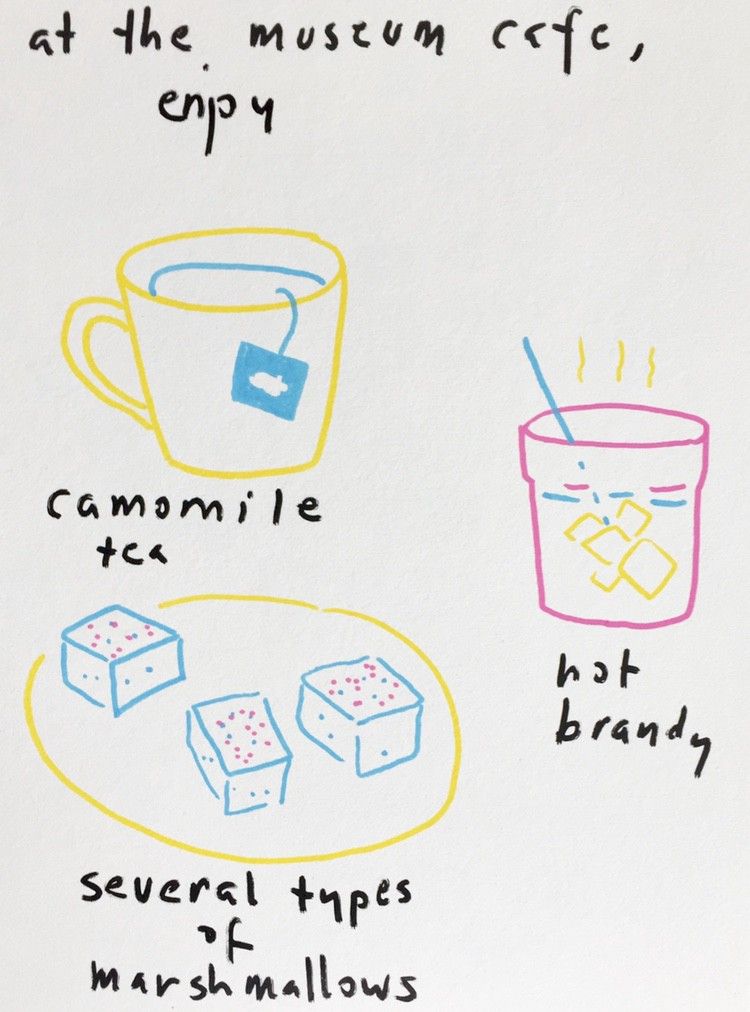 at the museum cafe,
enjoy
camomile
tea
hot
brandy
several types
of
marshmallows